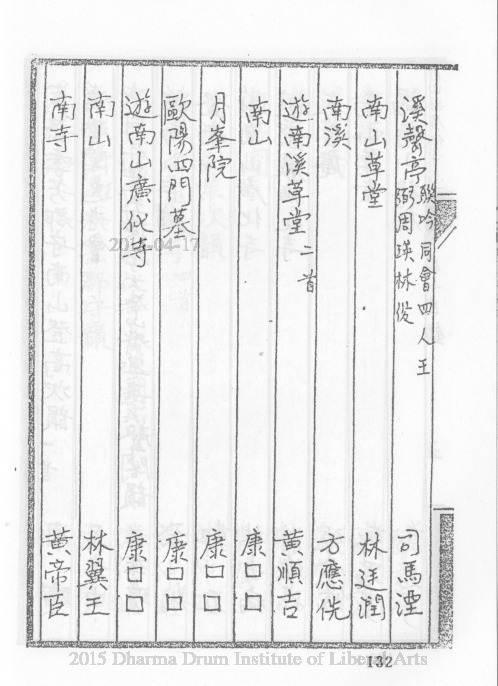 溪聲亭 聯吟同會四人王弼周瑛林俊 司馬湮
南山草堂 林廷潤
南溪 方應侁
遊南溪草堂二首 黃順吉
南山 康□□
月峯院 康□□
歐陽四門墓 康□□
遊南山廣化寺 康□□
南山 林翼王
南寺 黃帝臣
2015-04-17
132
2015 Dharma Drum Institute of Liberal Arts